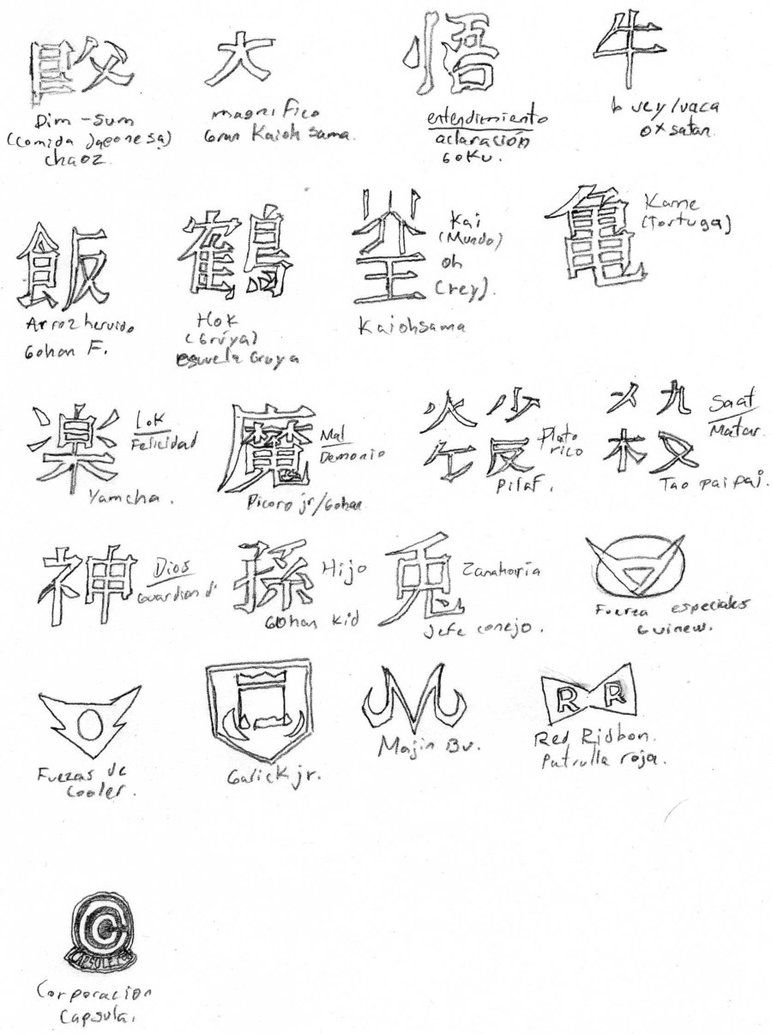 大 悟 牛
Dim-sum
(Comida Japonesa)
chaoz
magnifico
Gran Kaioh sama.
entendimiento
aclaración
Goku.
buey/vaca
ox satan
飯 鶴 亀
Arroz hervido
Gohan F.
Hok
(Grúya)
escuela Gruya
Kai
(Mundo)
Oh
(rey).
Kaiohsama
Kame
(Tortuga)
楽 魔
Lok
Felicidad
Yamcha.
Mal
Demonio
Picoro jr/Gohan
火 少
反
Plato
rico
Pilaf.
Saat
Matar
Tao pai pai.
神 孫 兎
Dios
Guardian d'
Hijo
Gohan Kid
Zanahoria
Jefe conejo.
Fuerza especiales
Guinew.
Fuezas de
Cooler.
Galick jr.
M
Majin Bu.
R R
Red Ribbon.
Patrulla roja.
C
CAPSULE
Corporacion
Capsula.